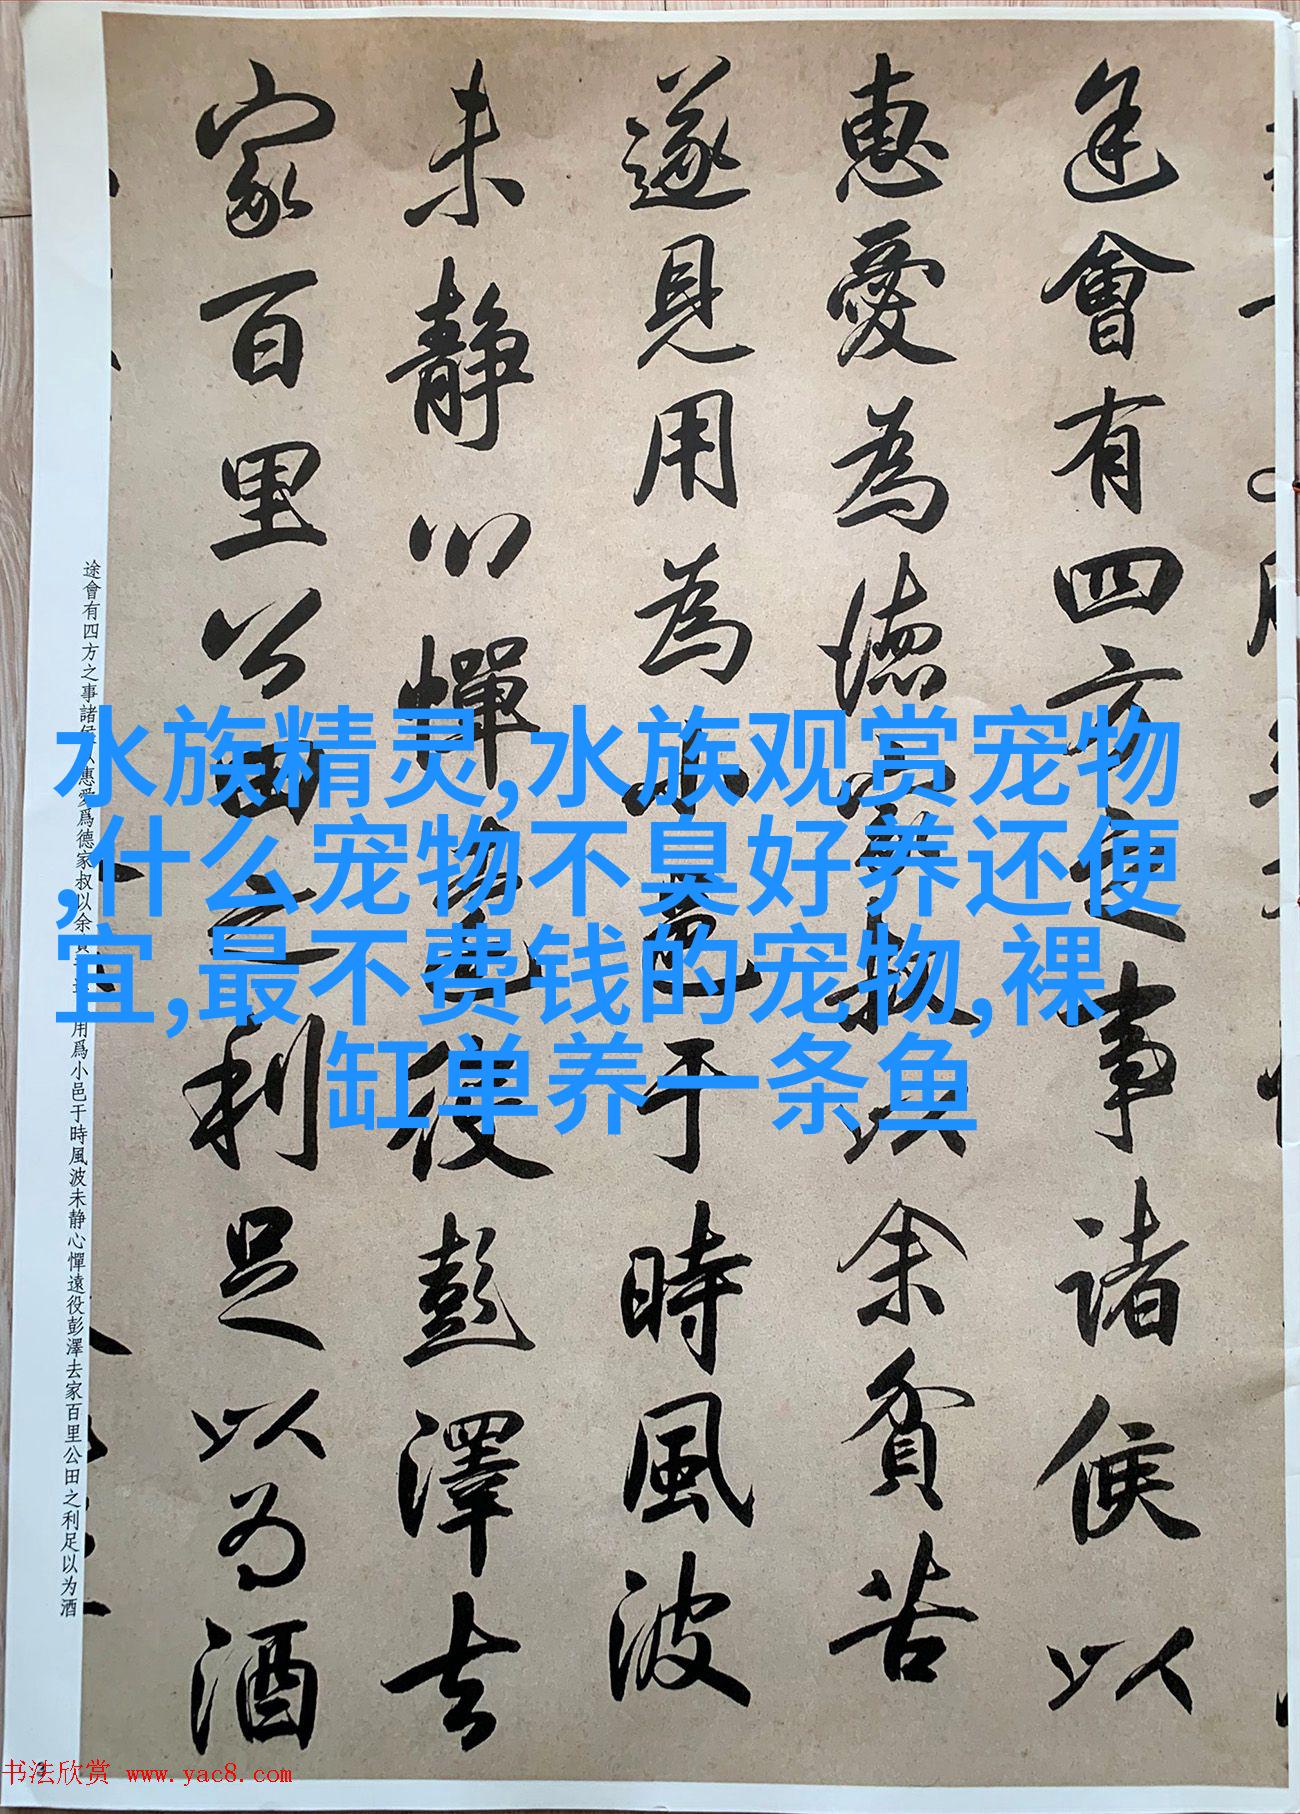 途會有四方之事諸侯以
惠愛為德家叔以余貧苦
遂見用為小邑于時風波
未靜心憚遠役彭澤去
家百里公田之利足以為酒
途會有四方之事諸侯以惠愛爲德家叔以余 用爲小邑于時風波未静心憚遠役彭澤去家百里公田之利足以为酒
水族精灵,水族观赏宠物
,什么宠物不臭好养还便
宜,最不费钱的宠物,裸
缸单养一条鱼
书法欣赏 www.yac8.com